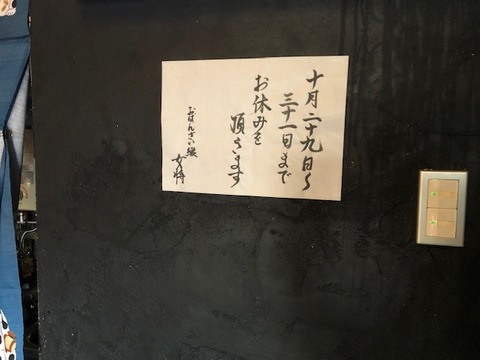 十月二十九日〜
三十一日まで
お休みを
頂きます
おばんざい
女将